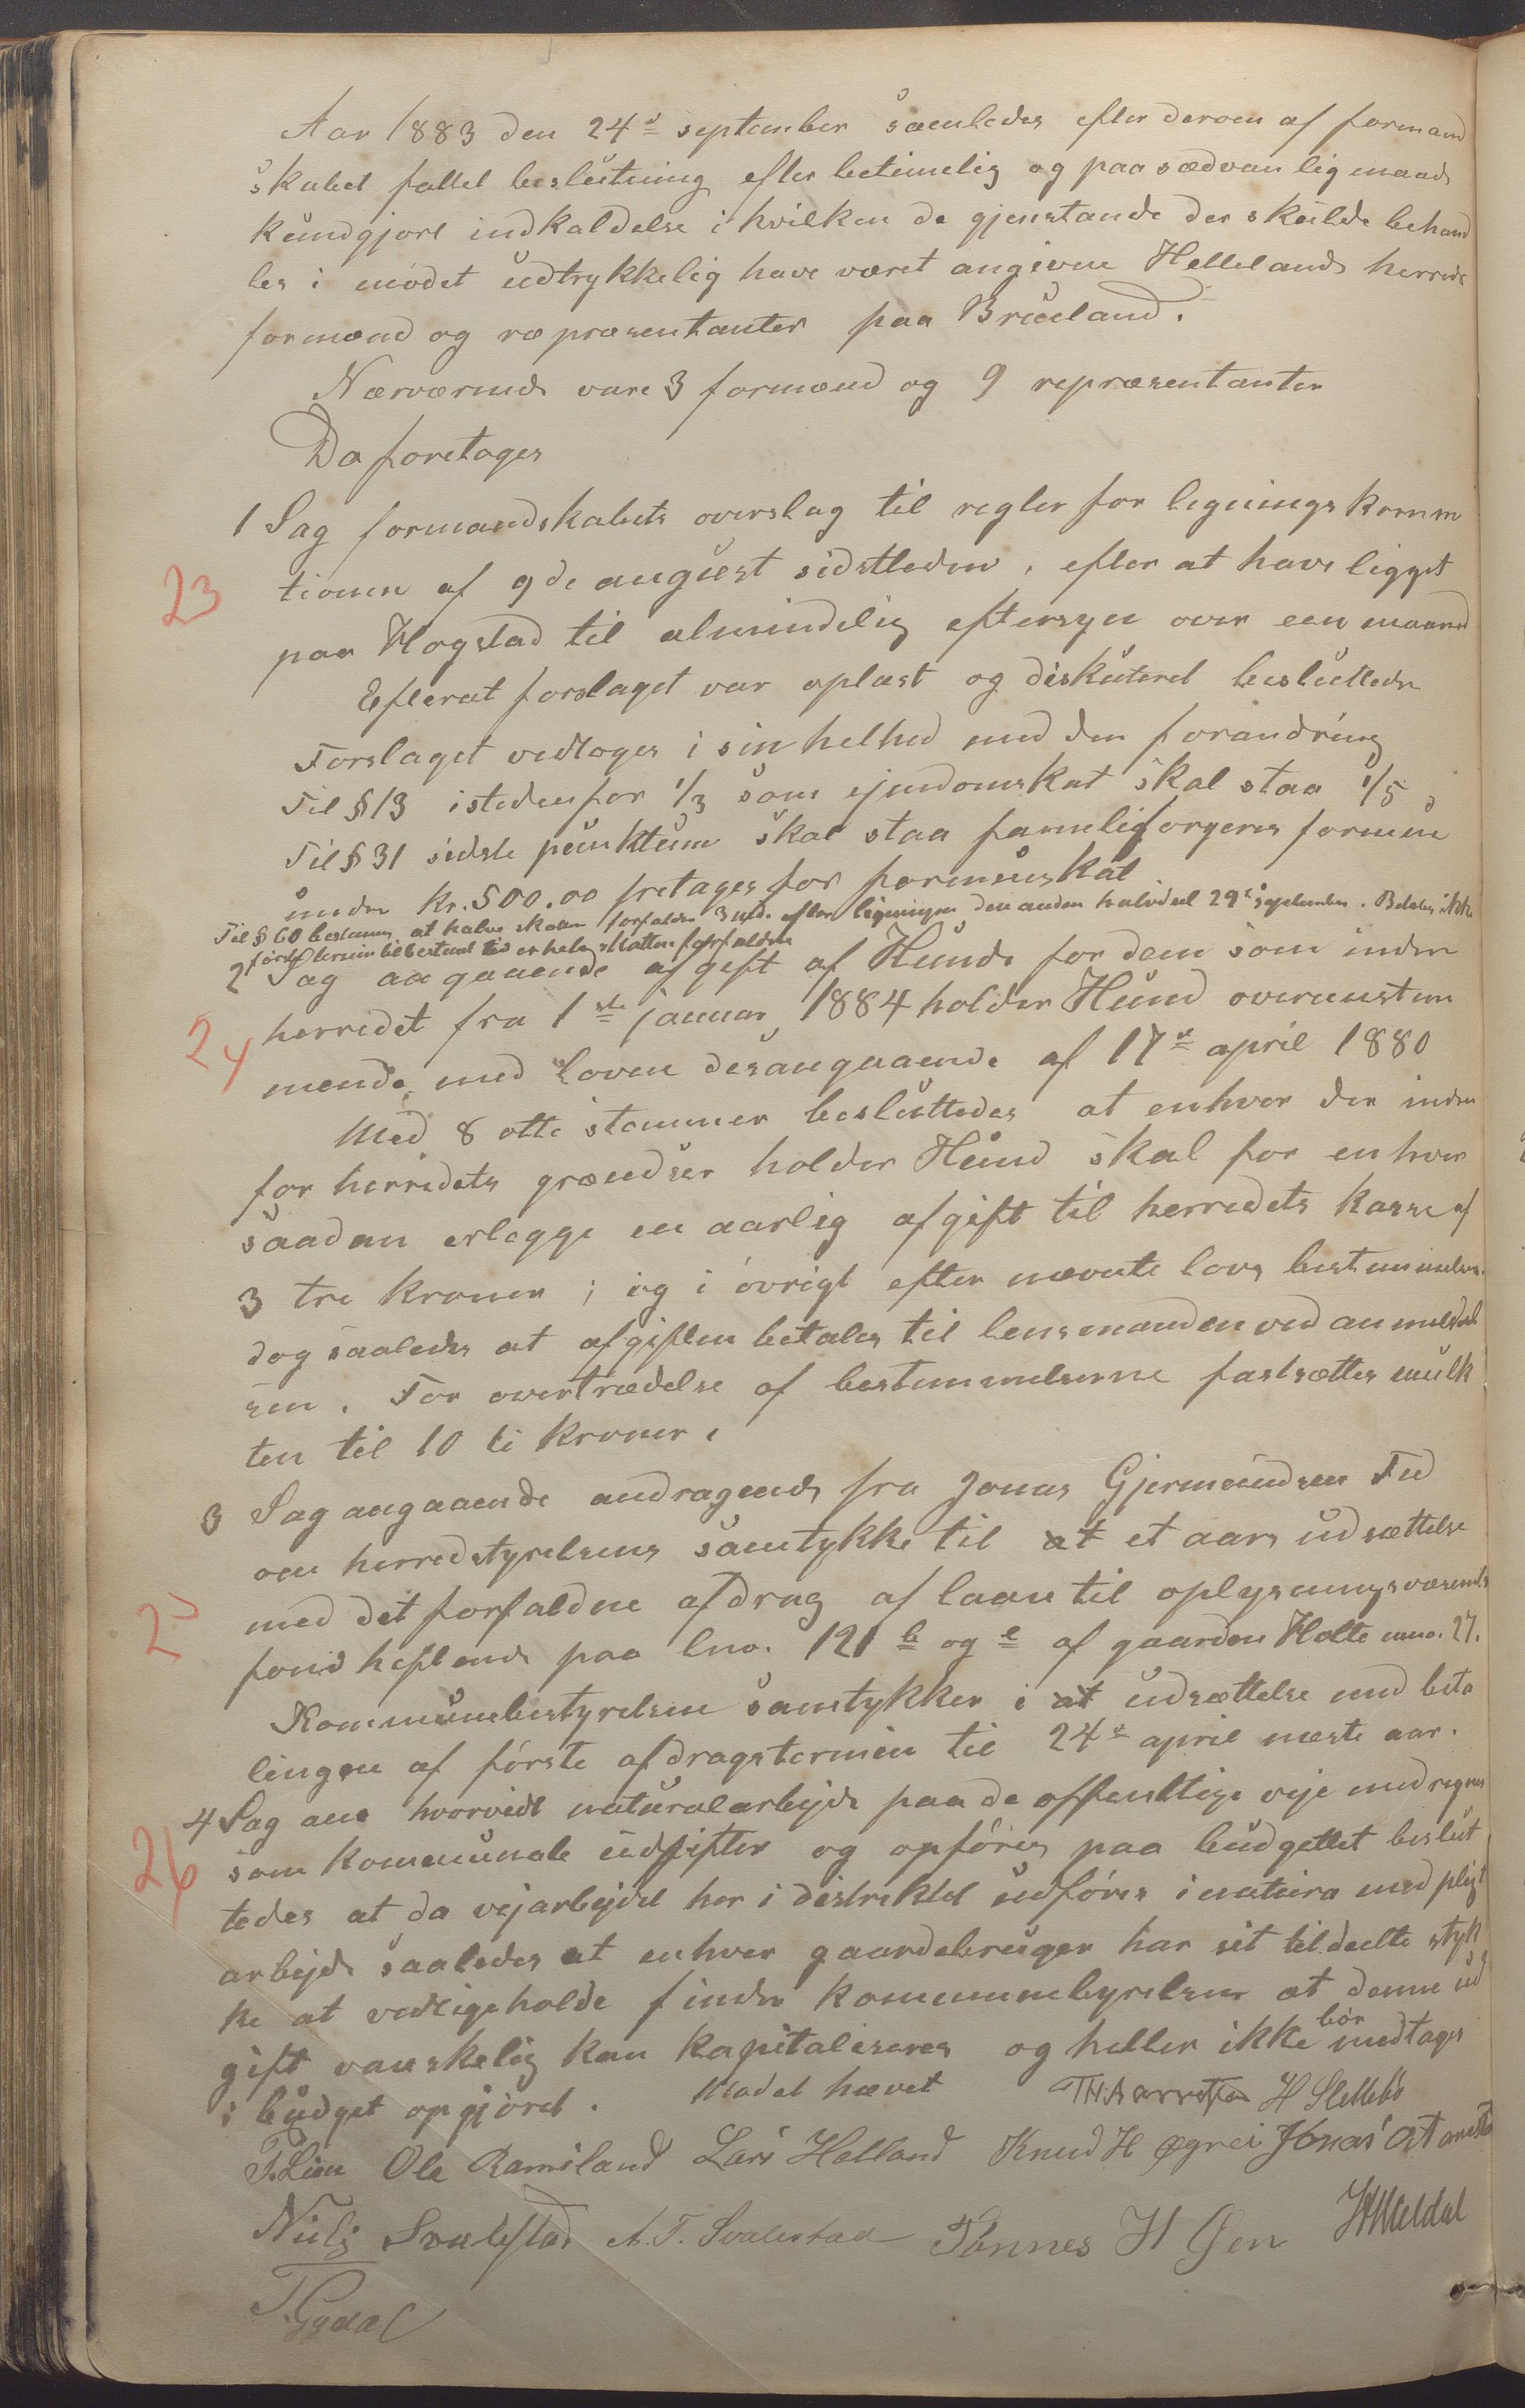 Aar 1883 den 24de september samledes efter derom af formand
skabet fattet beslutning efter betimelig og paa sædvanlig maade
kundgjort indkaldelse i hvilken de gjenstande der skulde behand
les i mødet udtrykkelig have været angivne Hellelands herreds
formænd og repræsentanter paa Brueland.
Nærværende vare 3 formænd og 9 repræsentanter
Da foretages
1 Sag formandskabets overslag til regler for lignings komm
tionen af 9de august sidstleden, efter at have ligget
23
paa Hogstad til almindelig eftersyn over een maaned
Efterat forslaget var oplæst og diskuteret besluttedes
Forslaget vedtoges i sin helhed med den forandring
Til § 13 istedenfor 1/3 som ejendomskat skal staa 1/5
Til § 31 sidste punktum skal staa familieforgeres formue
under kr. 500.00 fretages for formueskat
Til § 60 bestemmes at halve skatten forfalder 3 md. efter ligningen den anden halvdel 29de september. Betales ikke
første termin til bestemt tid er hele skatten forfalden
2 Sag angaaende afgift af Hunde for dem som inden
herredet fra 1ste januar 1884 holder Hund overensstem
24
mende med Loven desangaaende af 17de april 1880
Med 8 otte stemmer besluttedes at enhver der inden
for herredets grændser holder Hund skal for enhver
saadan erlægge en aarlig afgift til herredets kasse af
3 tre kroner; og i øvrigt efter nævnte lovs bestemmelser.
dog saaledes at afgiften betales til lensmanden ved anmeldel
sen. For overtrædelse af bestemmelserne fastsættes mulk
ten til 10 ti kroner.
3 Sag angaaende andragende fra Jonas Gjermundsen Fed
om herredstyrelsens samtykke til at et aars udsættelse
25
med det forfaldne afdrag af laan til oplysningsvæsenets
fond heftende paa lno. 121 b og e af gaarden Holte mno. 27.
Kommunebestyrelsen samtykker i at udsættelse med beta
lingen af første afdragstermin til 24de april næste aar.
4 Sag om hvorvidt naturalarbejde paa de offentlige veje medregnes
26
som kommunale udgifter og opføres paa budgettet beslut
tedes at da vejarbejdet her i distriktet udføres i natura med pligt
arbejde saaledes at enhver gaardebruger har sit tildeelte styk
ke at vedligeholde finder kommunebyrelsen at denne ud
gift vanskelig kan kapitaliseres og heller ikke bør medtages
i budget opgjøret. Mødet hævet
H Slettebø
T. Lien Ole Ramsland Lars Halland Knud H Øgrei Jonas
Nils Svalestad A. T. Svalestad Tønnes H Øen
T. Gydal